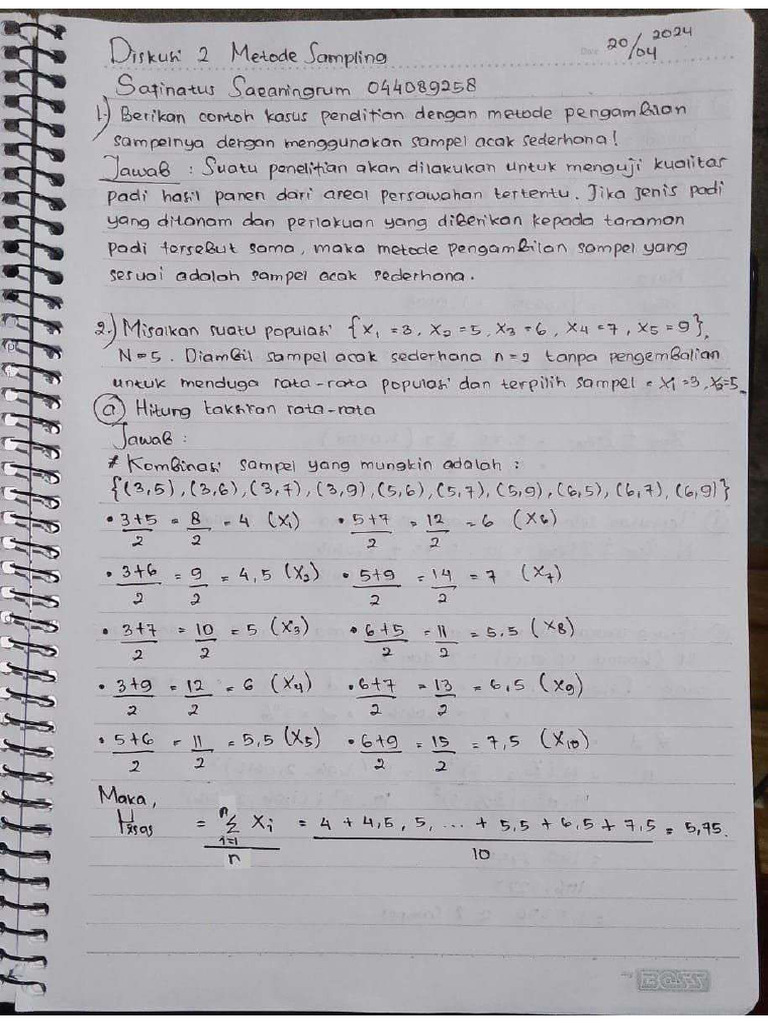 Diskusi 2 Metode Sampling
20/04 2024
Safinatus Saeaningrum 044089258
1.) Berikan contoh kasus penelitian dengan metode pengambilan
sampelnya dengan menggunakan sampel acak sederhana!
Jawab : Suatu penelitian akan dilakukan untuk menguji kualitas
padi hasil panen dari areal persawahan tertentu. Jika jenis padi
yang ditanam dan perlakuan yang diberikan kepada tanaman
padi tersebut sama, maka metode pengambilan sampel yang
sesuai adalah sampel acak sederhana.
2.) Misalkan suatu populasi {X1 = 3, X2 = 5, X3 = 6, X4 = 7, X5 = 9},
N = 5. Diambil sampel acak sederhana n = 2 tanpa pengembalian
untuk menduga rata-rata populasi dan terpilih sampel = X1 = 3, X2 = 5.
(a) Hitung taksiran rata-rata
Jawab :
* Kombinasi sampel yang mungkin adalah :
{(3,5), (3,6), (3,7), (3,9), (5,6), (5,7), (5,9), (6,5), (6,7), (6,9)}
• 3+5/2 = 8/2 = 4 (X1) • 5+7/2 = 12/2 = 6 (X6)
• 3+6/2 = 9/2 = 4,5 (X2) • 5+9/2 = 14/2 = 7 (X7)
• 3+7/2 = 10/2 = 5 (X3) • 6+5/2 = 11/2 = 5.5 (X8)
• 3+9/2 = 12/2 = 6 (X4) • 6+7/2 = 13/2 = 6,5 (X9)
• 5+6/2 = 11/2 = 5,5 (X5) • 6+9/2 = 15/2 = 7,5 (X10)
Maka,
= n Σ i=1 Xi / n = 4 + 4,5, 5, ... + 5,5 + 6,5 + 7,5 / 10 = 5,75.
BOSS